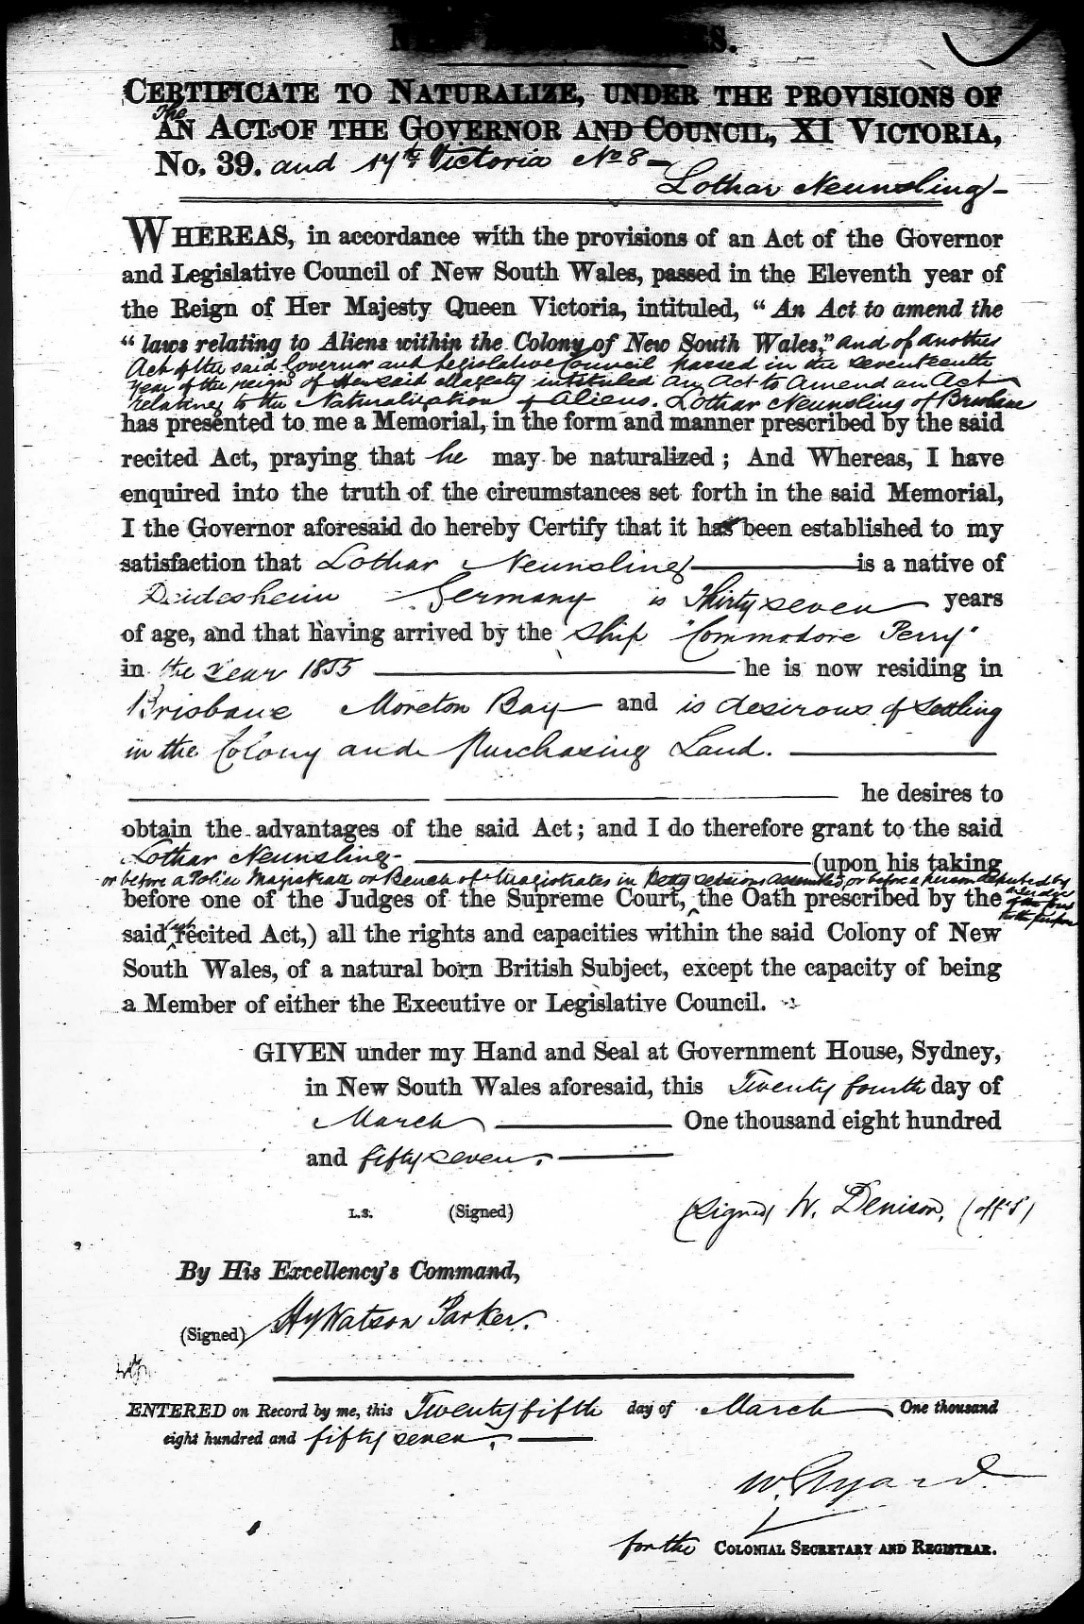 CERTIFICATE TO NATURALIZE, UNDER THE PROVISIONS OF
The
AN ACTS OF THE GOVERNOR AND COUNCIL, XI VICTORIA,
No. 39. and 17th Victoria No 8 —
Lothar Neunsling —
WHEREAS, in accordance with the provisions of an Act of the Governor
and Legislative Council of New South Wales, passed in the Eleventh year of
the Reign of Her Majesty Queen Victoria, intituled, " An Act to amend the
" laws relating to Aliens within the Colony of New South Wales," and of another
Act of the said Governor and Legislative Council passed in the seventeenth
year of the reign of Her said Majesty intituled an Act to Amend an Act
relating to the Naturalization of Aliens. Lothar Neunsling of Brisbane
has presented to me a Memorial, in the form and manner prescribed by the said
recited Act, praying that he may be naturalized ; And Whereas, I have
enquired into the truth of the circumstances set forth in the said Memorial,
I the Governor aforesaid do hereby Certify that it has been established to my
satisfaction that Lothar Neunsling is a native of
Deidesheim Germany is Thirty seven years
of age, and that having arrived by the Ship "Commodore Perry"
in the Year 1855 he is now residing in
Brisbane Moreton Bay and is desirous of settling
in the Colony and Purchasing Land.
he desires to
obtain the advantages of the said Act ; and I do therefore grant to the said
Lothar Neunsling (upon his taking
or before a Police Magistrate or Bench of Magistrates in petty sessions assembled, or before a person deputed by
before one of the Judges of the Supreme Court, the Oath prescribed by the
said recited Act,) all the rights and capacities within the said Colony of New
South Wales, of a natural born British Subject, except the capacity of being
a Member of either the Executive or Legislative Council.
GIVEN under my Hand and Seal at Government House, Sydney,
in New South Wales aforesaid, this Twenty fourth day of
March One thousand eight hundred
and fifty seven.
L.S. (Signed) (Signed) W. Denison,
By His Excellency's Command,
(Signed) Hy Watson Parker.
ENTERED on Record by me, this Twenty fifth day of March One thousand
eight hundred and fifty seven.
W. Elyard
for the COLONIAL SECRETARY AND REGISTRAR.